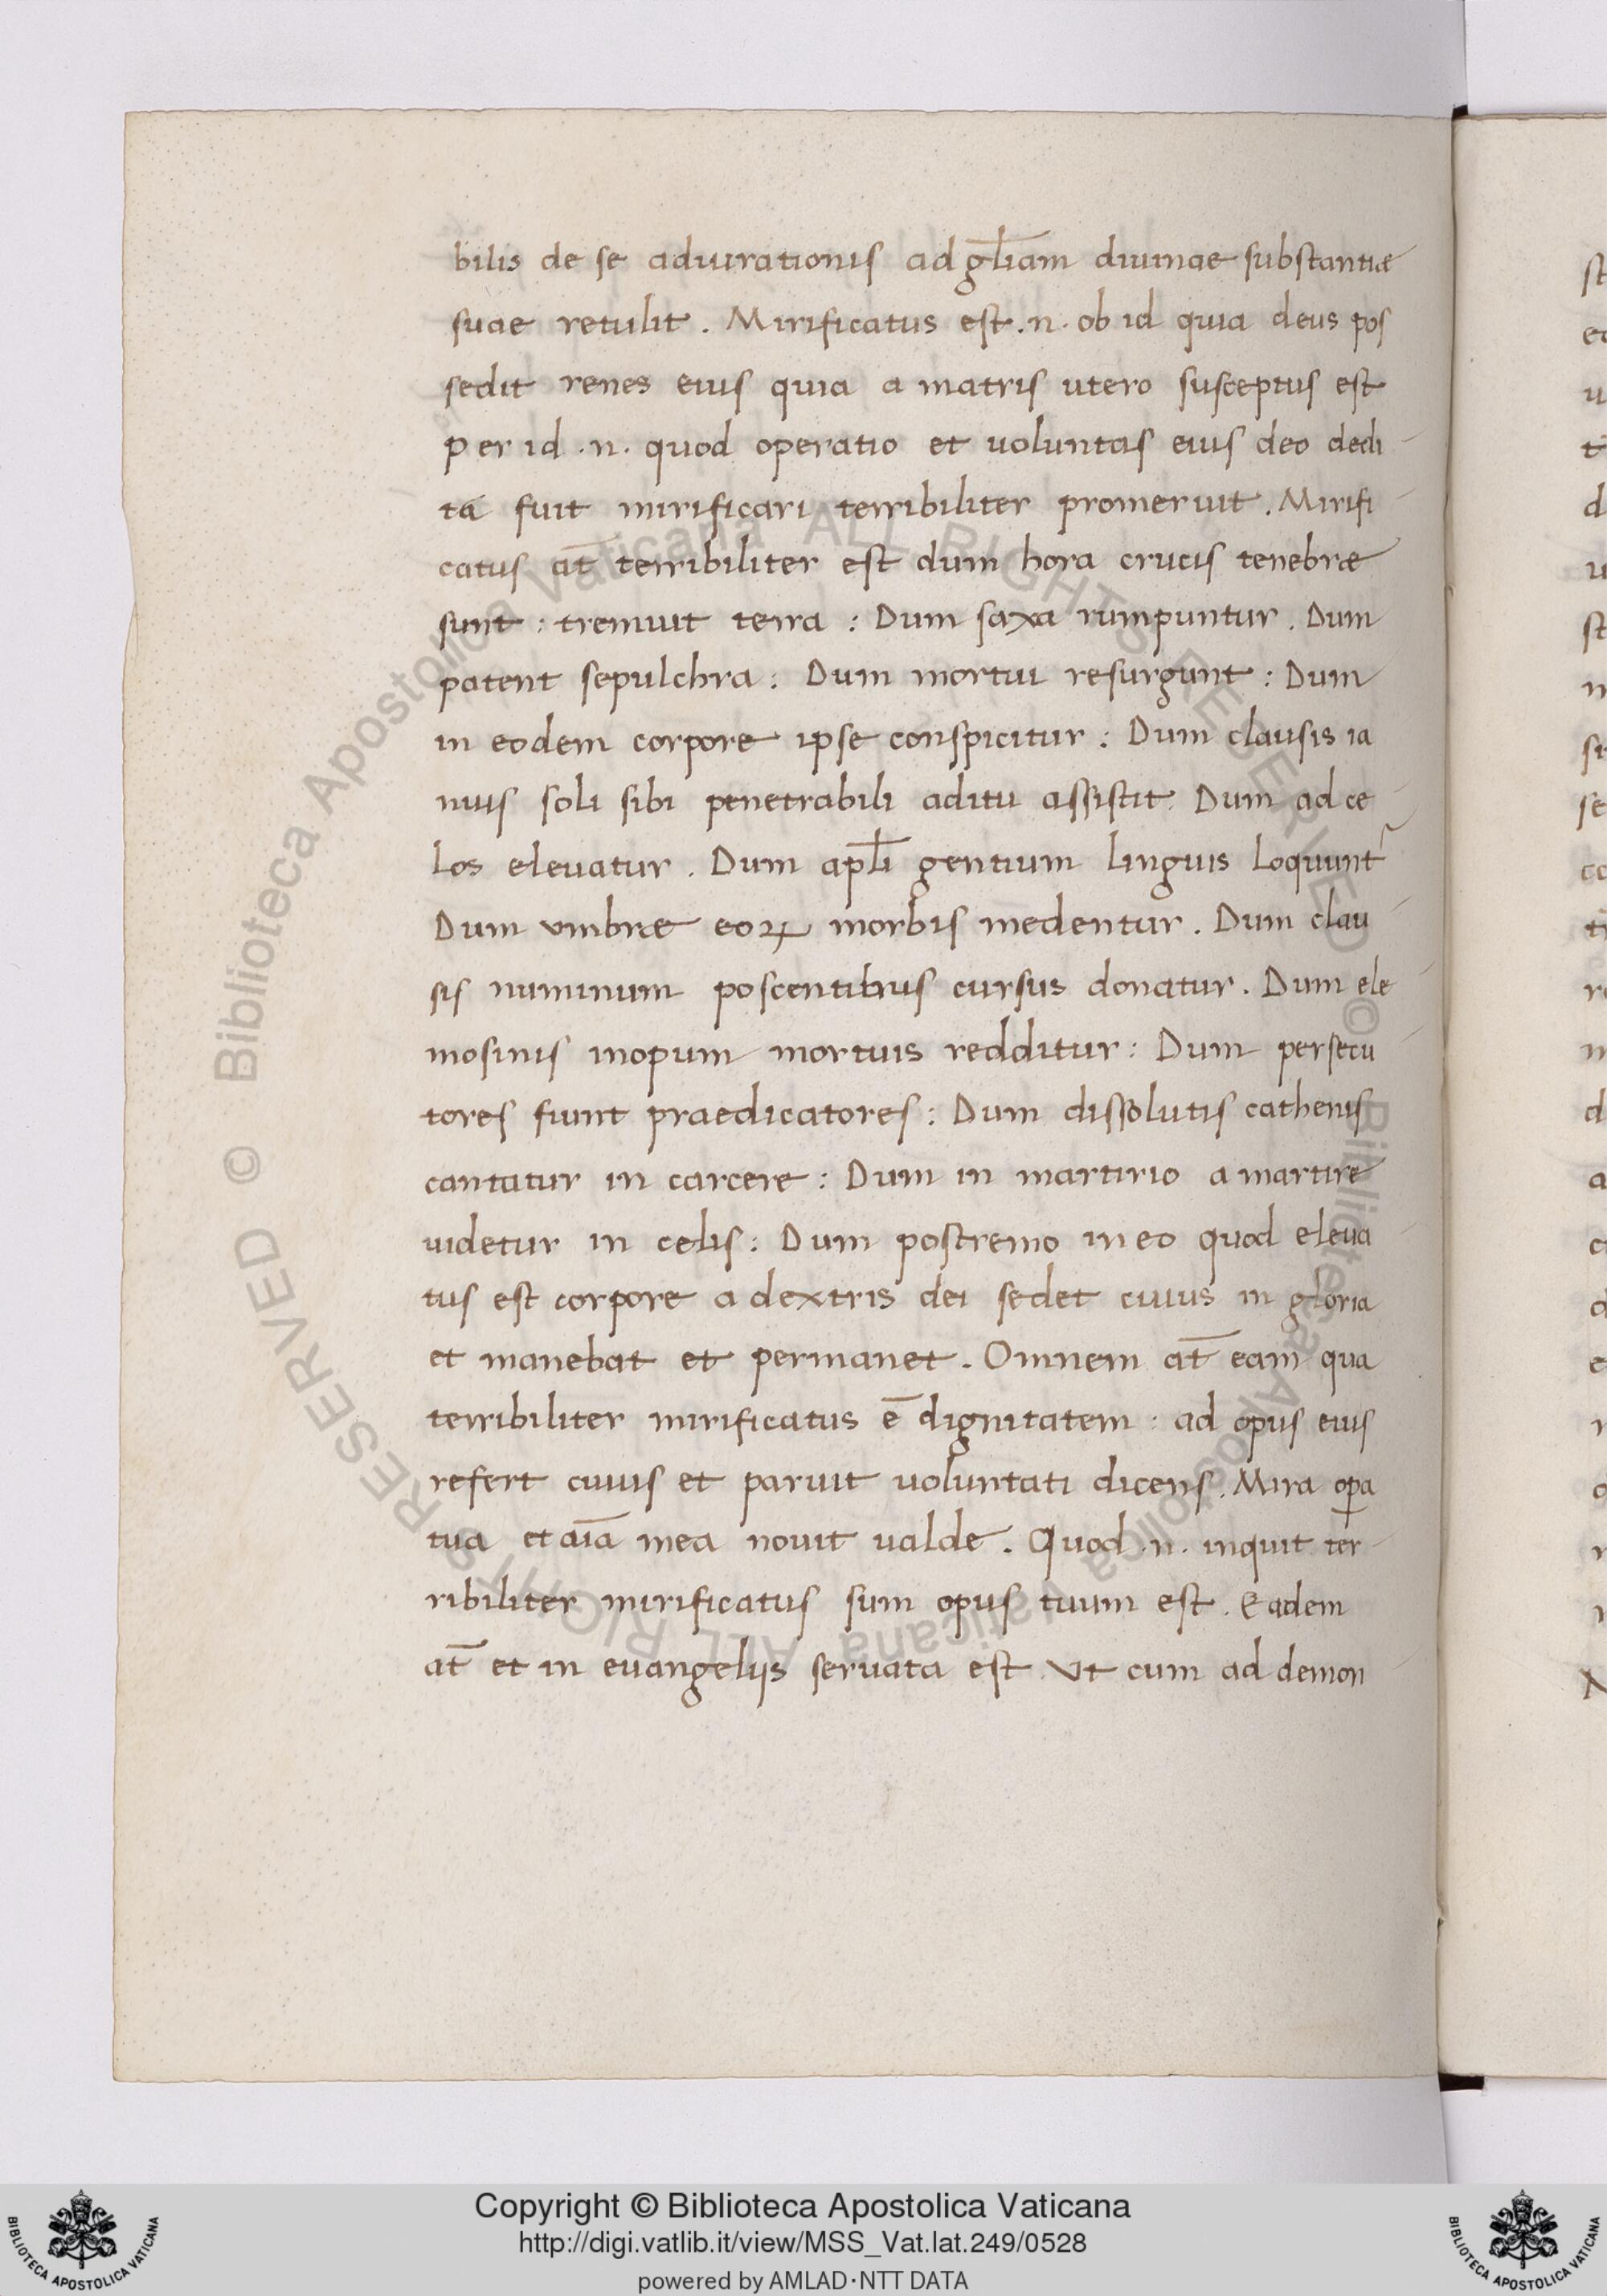 bilis de se adiurationis ad gl̅iam diuinae substantiæ
suae retulit. Mirificatus est .n. ob id quia deus pos
sedit renes eius quia a matris utero susceptus est
Per id .n. quod operatio et uoluntas eius deo dedi
ta fuit mirificari terribiliter promeruit. Mirifi
catus at̅ terribiliter est dum hora crucis tenebræ
sunt: tremuit terra: Dum saxa rumpuntur. Dum
patent sepulchra: Dum mortui resurgunt: Dum
in eodem corpore ipse conspicitur: Dum clausis ia
nuis soli sibi penetrabili aditu assistit. Dum ad ce
los eleuatur. Dum apl̅i gentium linguis loquunt᷑
Dum vmbræ eoꝝ morbis medentur. Dum clau
sis numinum poscentibus cursus donatur. Dum ele
mosinis inopum mortuis redditur: Dum persecu
tores fiunt praedicatores: Dum dissolutis cathenis
cantatur in carcere: Dum in martirio a martire
uidetur in celis: Dum postremo in eo quod eleua
tus est corpore a dextris dei sedet cuius in gloria
et manebat et permanet. Omnem at̅ eam qua
terribiliter mirificatus e̅ dignitatem: ad opus eius
refert cuius et paruit uoluntati dicens. Mira oꝑa
tua et aı̅a mea nouit ualde. Quod .n. inquit ter
ribiliter mirificatus sum opus tuum est. Eadem
at̅ et in euangeliis seruata est. Vt cum ad demon
© Biblioteca Apostolica Vaticana ALL RIGHTS RESERVED
© Biblioteca Apostolica Vaticana ALL RIGHTS RESERVED
Copyright © Biblioteca Apostolica Vaticana
http://digi.vatlib.it/view/MSS_Vat.lat.249/0528
powered by AMLAD·NTT DATA
BIBLIOTECA APOSTOLICA VATICANA
BIBLIOTECA APOSTOLICA VATICANA